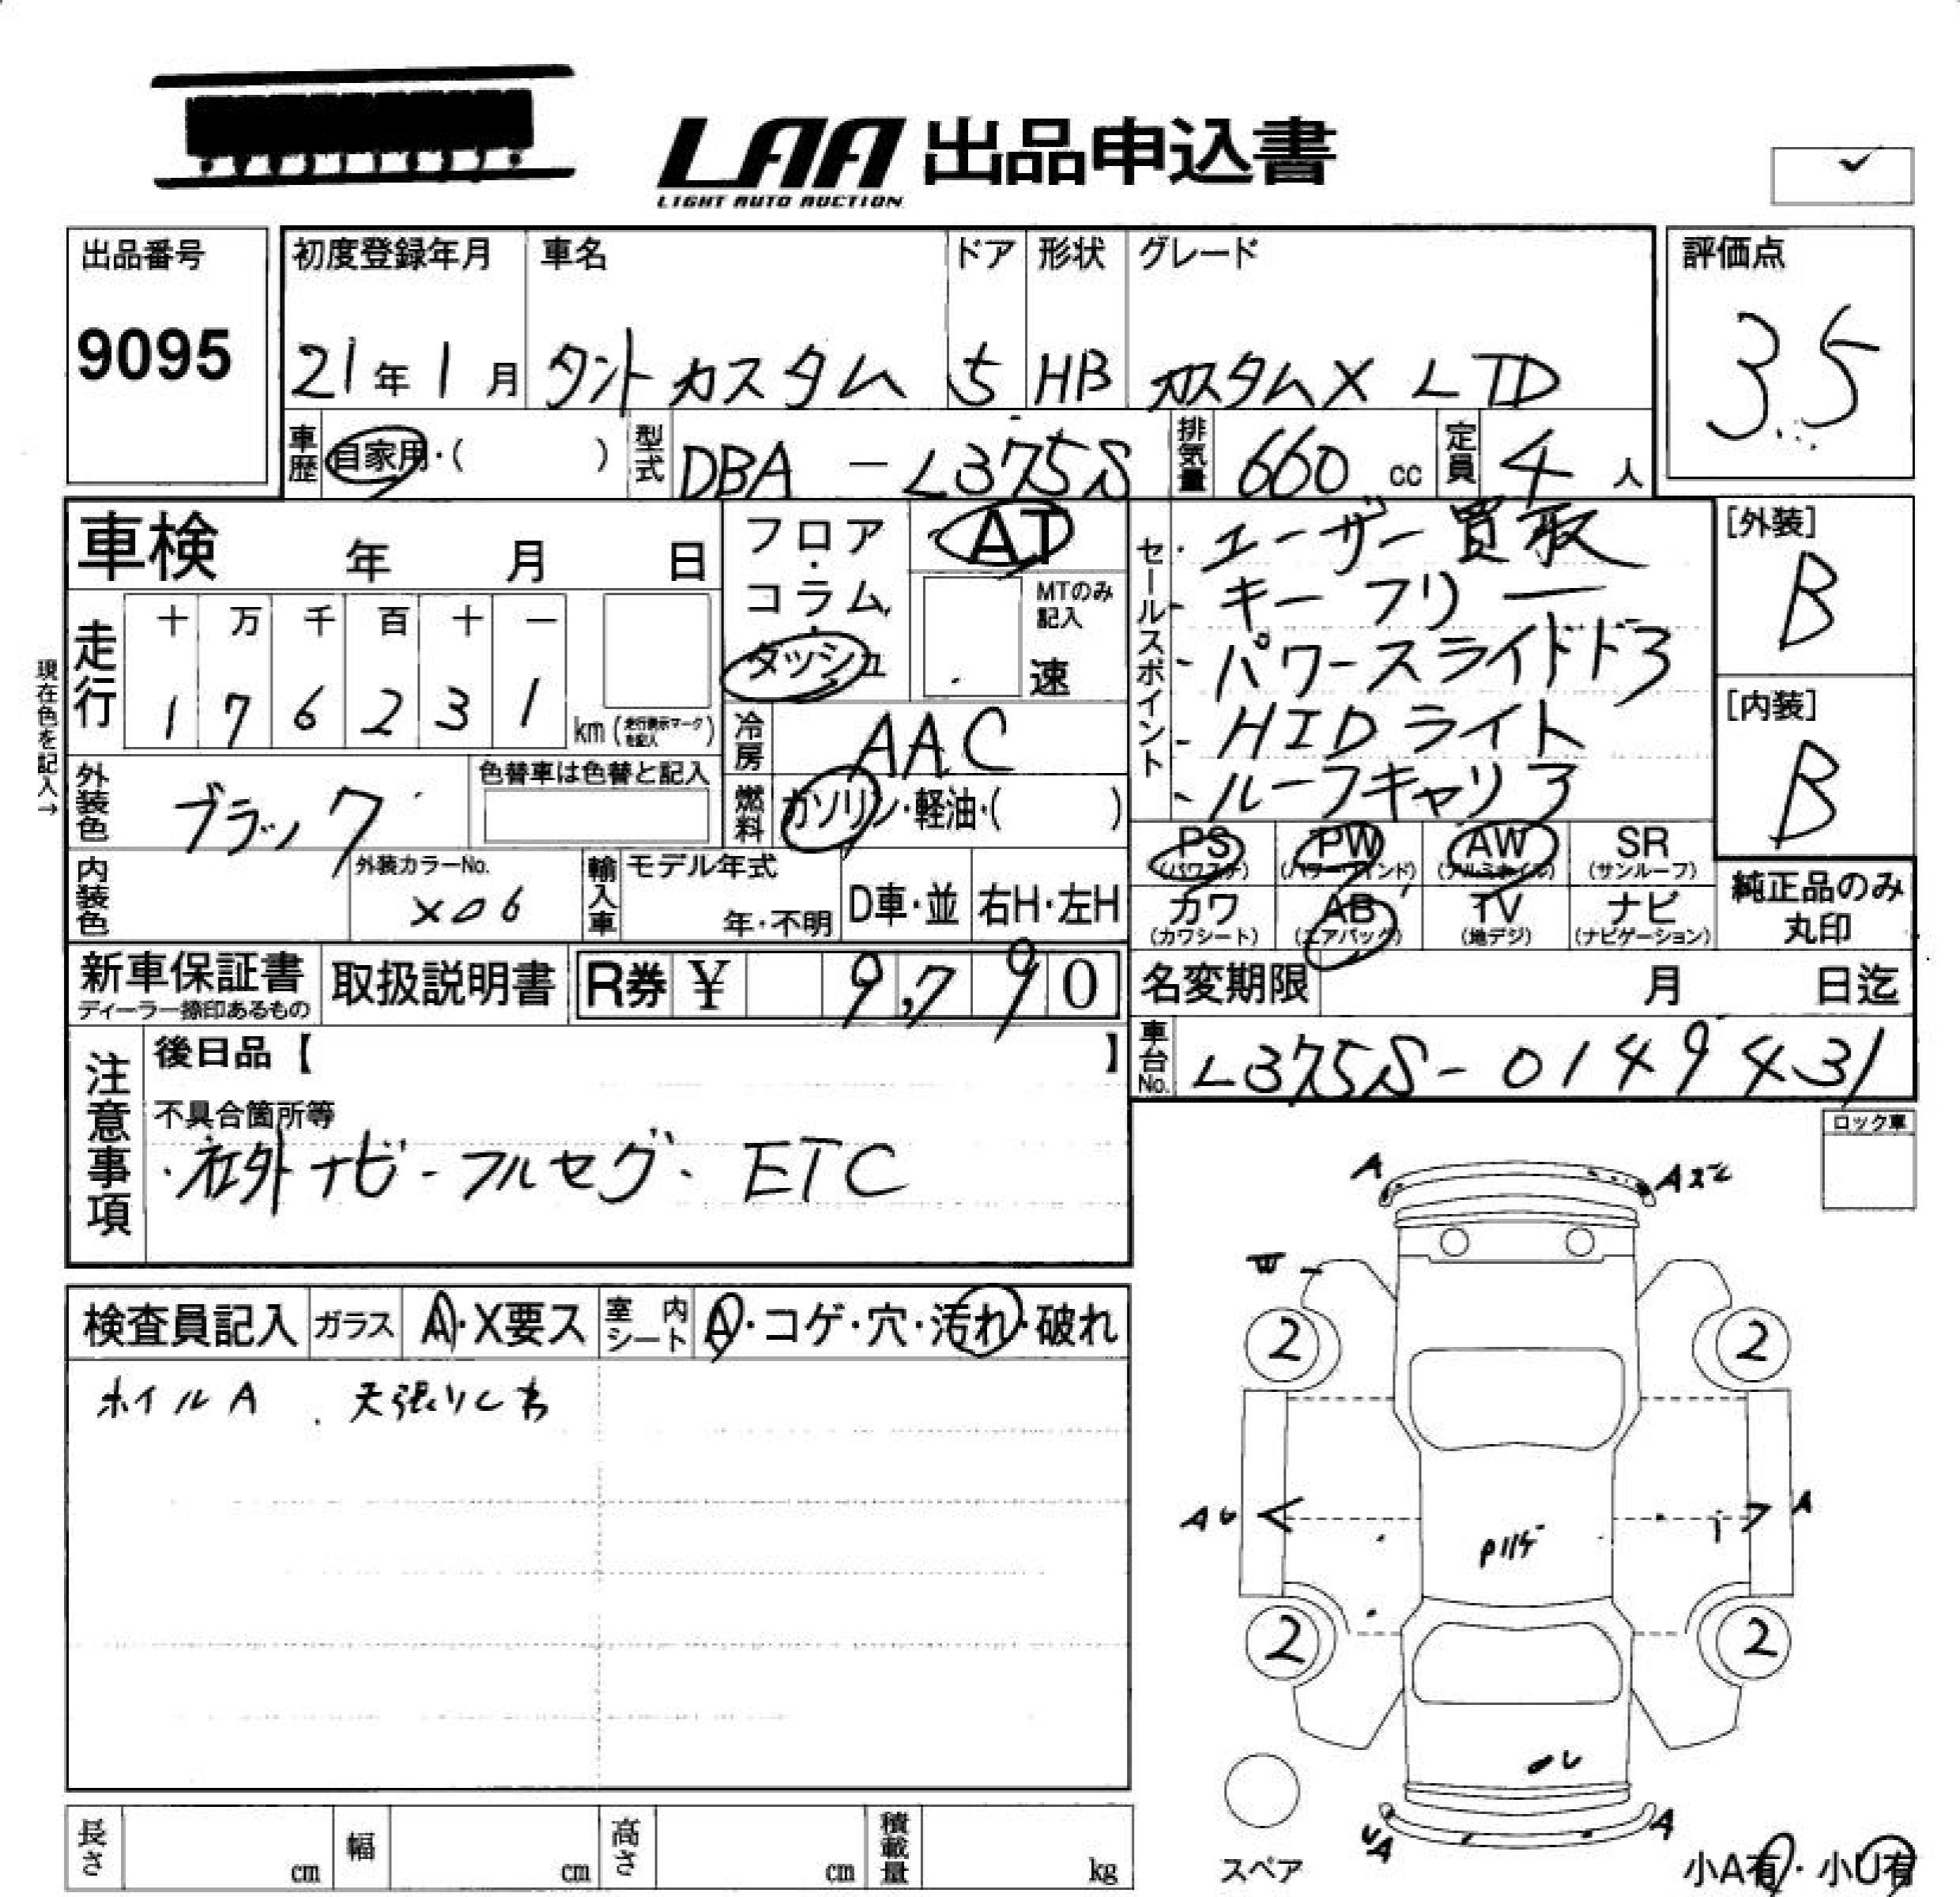 LAA 出品申込書
LIGHT AUTO AUCTION
出品番号
9095
初度登録年月 車名 ドア 形状 グレード
21年1月 タントカスタム 5 HB カスタムX LTD
評価点
3.5
車歴 自家用・( ) 型式 DBA-L375S 排気量 660 cc 定員 4 人
車検 年 月 日
フロア・コラム・ダッシュ
AT
MTのみ記入
速
セールスポイント
・ユーザー買取
・キーフリー
・パワースライドドア
・HIDライト
・ルーフキャリア
[外装]
B
[内装]
B
現在色を記入→
走行
十 万 千 百 十 一
1 7 6 2 3 1 km (走行表示マークを記入)
冷房 AAC
外装色 ブラック
色替車は色替と記入
燃料 ガソリン・軽油・( )
内装色
外装カラーNo.
X06
輸入車 モデル年式
年・不明
D車・並 右H・左H
PS (パワステ) PW (パワーウインド) AW (アルミホイル) SR (サンルーフ)
カワ (カワシート) AB (エアバッグ) TV (地デジ) ナビ (ナビゲーション)
純正品のみ丸印
新車保証書
ディーラー捺印あるもの
取扱説明書
R券 ¥ 9,790
名変期限 月 日迄
車台No. L375S-0149431
注意事項
後日品【 】
不具合箇所等
・社外ナビ・フルセグ・ETC
ロック車
検査員記入 ガラス A・X要ス 室内シート A・コゲ・穴・汚れ・破れ
ホイルA.
A
A
W
2 2
A
A
2 2
スペア
UA
A
小A有・小U有
長さ cm 幅 cm 高さ cm 積載量 kg